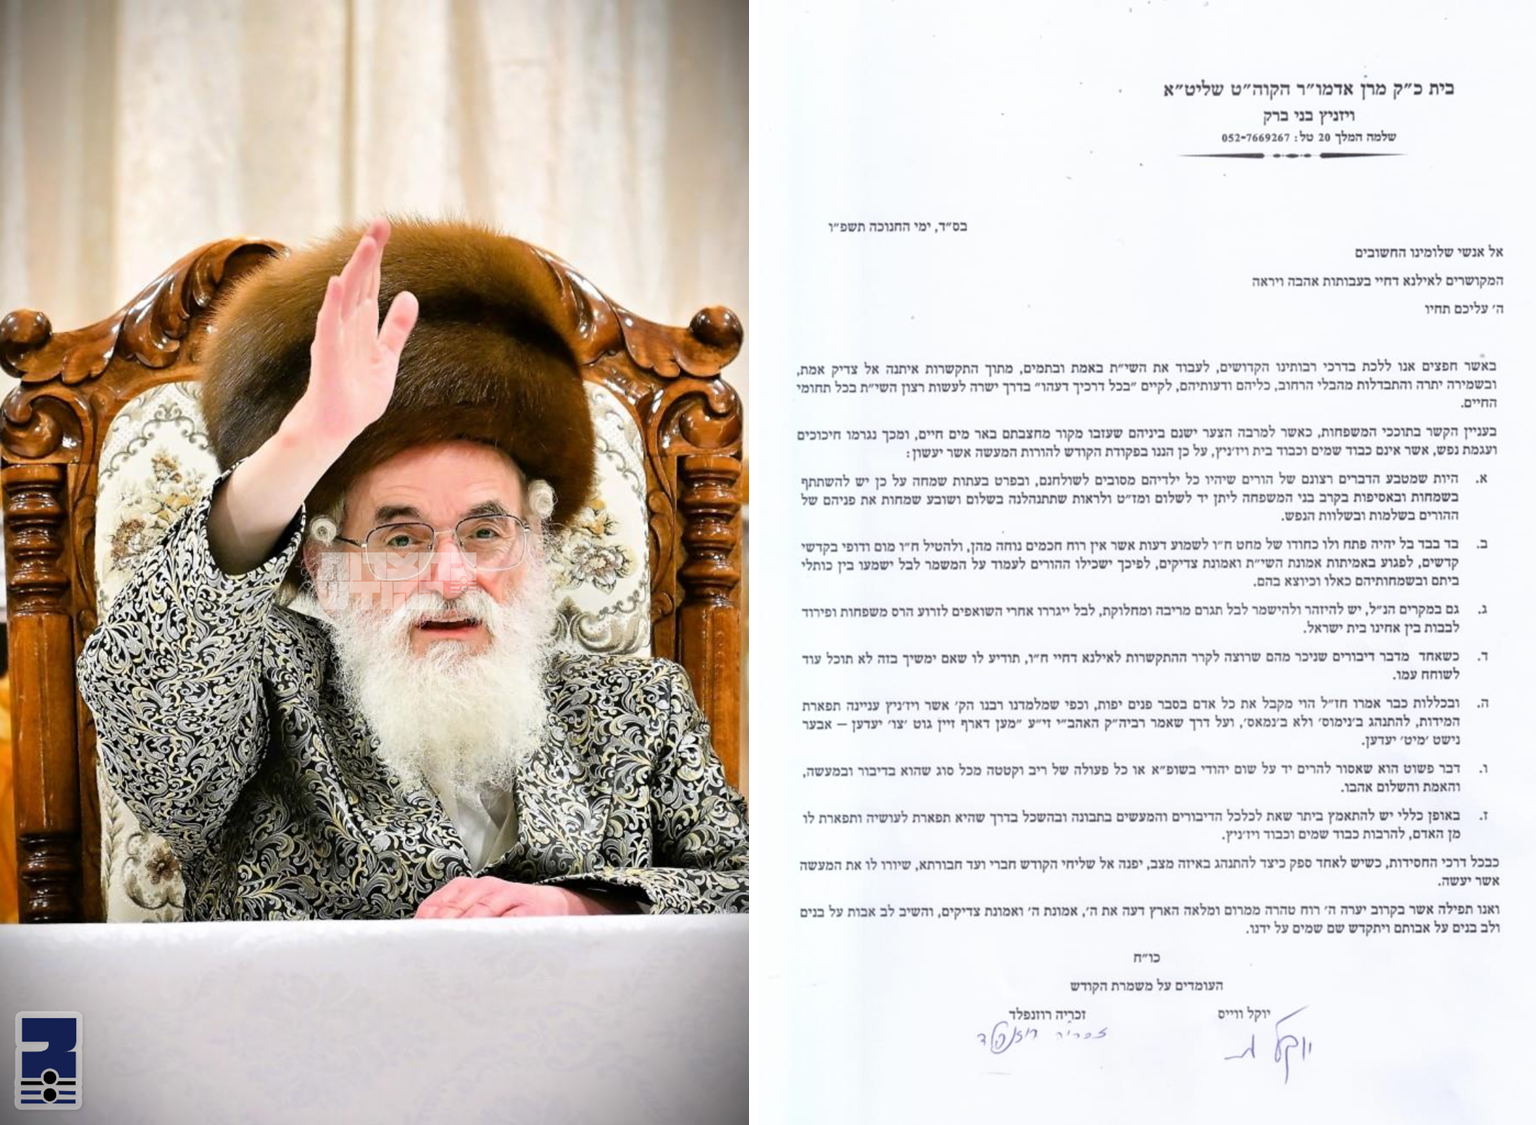 בית כ״ק מרן אדמו״ר הקוה״ט שליט״א
ויזניץ בני ברק
שלמה המלך 20 טל: 052-7669267
בס״ד, ימי החנוכה תשפ״ו
אל אנשי שלומינו החשובים
המקושרים לאילנא דחיי בעבותות אהבה ויראה
ה׳ עליכם תחיו
באשר חפצים אנו ללכת בדרכי רבותינו הקדושים, לעבוד את השי״ת באמת ובתמים, מתוך התקשרות איתנה אל צדיק אמת,
ובשמירה יתרה והתבדלות מהבלי הרחוב, כליהם ודעותיהם, לקיים ״בכל דרכיך דעהו״ בדרך ישרה לעשות רצון השי״ת בכל תחומי
החיים.
בעניין הקשר בתוככי המשפחות, כאשר למרבה הצער ישנם ביניהם שעזבו מקור מחצבתם באר מים חיים, ומכך נגרמו חיכוכים
ועגמת נפש, אשר אינם כבוד שמים וכבוד בית ויז׳ניץ, על כן הננו בפקודת הקודש להורות המעשה אשר יעשון:
א. היות שמטבע הדברים רצונם של הורים שיהיו כל ילדיהם מסובים לשולחנם, ובפרט בעתות שמחה על כן יש להשתתף
בשמחות ובאסיפות בקרב בני המשפחה ליתן יד לשלום ומז״ט ולראות שתתנהלנה בשלום ושובע שמחות את פניהם של
ההורים בשלמות ובשלוות הנפש.
ב. בד בבד בל יהיה פתח ולו כחודו של מחט ח״ו לשמוע דעות אשר אין רוח חכמים נוחה מהן, ולהטיל ח״ו מום ודופי בקדשי
קדשים, לפגוע באמיתות אמונת השי״ת ואמונת צדיקים, לפיכך ישכילו ההורים לעמוד על המשמר לבל ישמעו בין כותלי
ביתם ובשמחותיהם כאלו וכיוצא בהם.
ג. גם במקרים הנ״ל, יש להיזהר ולהישמר לבל תגרם מריבה ומחלוקת, לבל ייגררו אחרי השואפים לזרוע הרס משפחות ופירוד
לבבות בין אחינו בית ישראל.
ד. כשאחד מדבר דיבורים שניכר מהם שרוצה לקרר ההתקשרות לאילנא דחיי ח״ו, תודיע לו שאם ימשיך בזה לא תוכל עוד
לשוחח עמו.
ה. ובכללות כבר אמרו חז״ל הוי מקבל את כל אדם בסבר פנים יפות, וכפי שמלמדנו רבנו הק׳ אשר ויז׳ניץ עניינה תפארת
המידות, להתנהג ב׳נימוס׳ ולא ב׳נמאס׳, ועל דרך שאמר רביה״ק האהב״י זי״ע ״מען דארף זיין גוט ׳צו׳ יעדען – אבער
נישט ׳מיט׳ יעדען.
ו. דבר פשוט הוא שאסור להרים יד על שום יהודי בשופ״א או כל פעולה של ריב וקטטה מכל סוג שהוא בדיבור ובמעשה,
והאמת והשלום אהבו.
ז. באופן כללי יש להתאמץ ביתר שאת לכלכל הדיבורים והמעשים בתבונה ובהשכל בדרך שהיא תפארת לעושיה ותפארת לו
מן האדם, להרבות כבוד שמים וכבוד ויז׳ניץ.
כבכל דרכי החסידות, כשיש לאחד ספק כיצד להתנהג באיזה מצב, יפנה אל שליחי הקודש חברי ועד חבורתא, שיורו לו את המעשה
אשר יעשה.
ואנו תפילה אשר בקרוב יערה ה׳ רוח טהרה ממרום ומלאה הארץ דעה את ה׳, אמונת ה׳ ואמונת צדיקים, והשיב לב אבות על בנים
ולב בנים על אבותם ויתקדש שם שמים על ידנו.
כו״ח
העומדים על משמרת הקודש
יוקל ווייס
זכריה רוזנפלד
יוקל
זכריה רוזנפלד